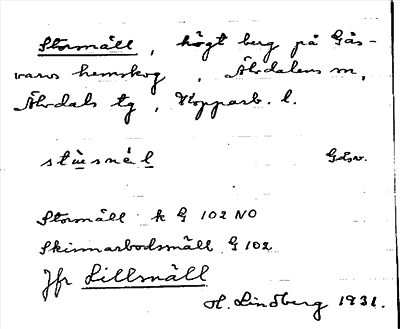 Stormäll, högt berg på Gås-
varvs hemskog, Älvdalens sn,
Älvdals tg, Kopparb. l.
Gåsv.
Stormäll k G 102 NO
Skinnarbodsmäll G 102
Jfr Lillsmäll
H. Lindberg 1931.